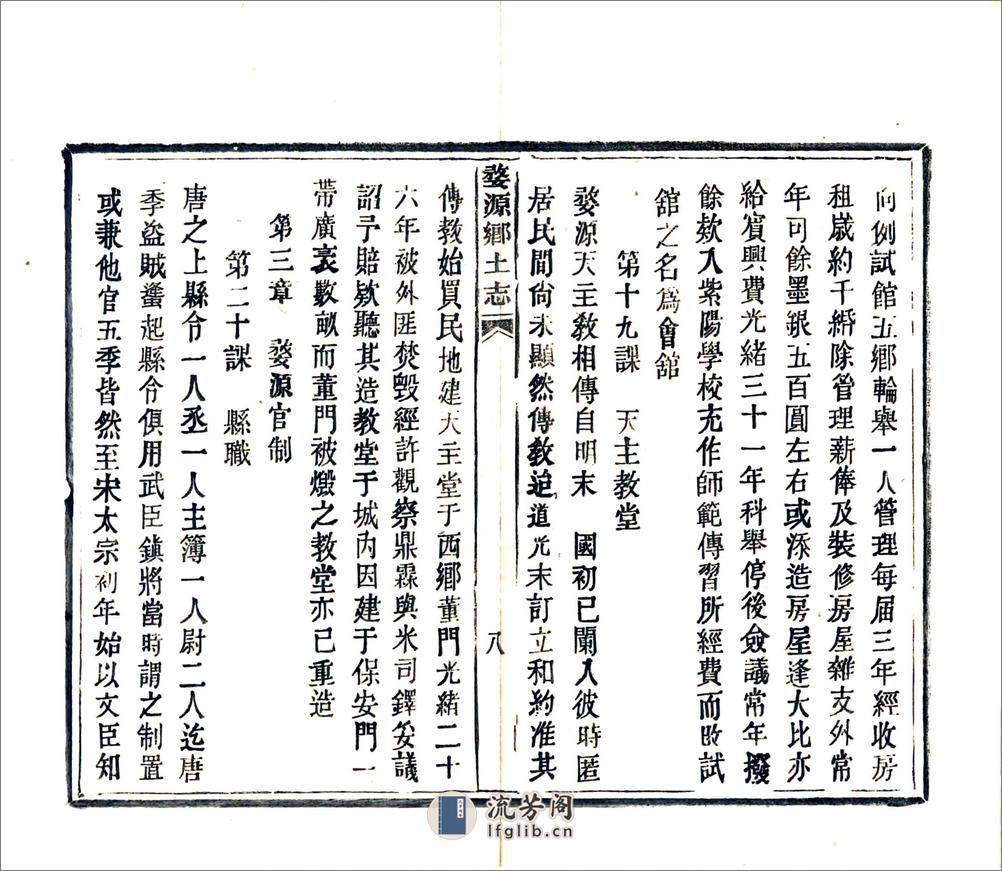 向例試館五鄉輪舉一人管理每届三年經收房
租歲約千緡除管理薪俸及裝修房屋雜支外常
年可餘墨銀五百圓左右或添造房屋逢大比亦
給賓興費光緒三十一年科舉停後僉議常年撥
餘欵入紫陽學校充作師範傳習所經費而改試
舘之名爲會舘
第十九課　天主教堂
婺源天主敎相傳自明末　國初已闌入彼時匿
居民間尙未顯然傳敎迨道光末訂立和約准其
婺源鄉土志
八
傳敎始買民地建天主堂于西鄉董門光緒二十
六年被外匪焚毀經許觀察鼎霖與米司鐸妥議
詔予賠欵聽其造敎堂于城內因建于保安門一
帶廣袤數畝而董門被燬之敎堂亦已重造
第三章　婺源官制
第二十課　縣職
唐之上縣令一人丞一人主簿一人尉二人迄唐
季盜賊蠭起縣令俱用武臣鎮將當時謂之制置
或兼他官五季皆然至宋太宗初年始以文臣知
流芳阁
lfglib.cn